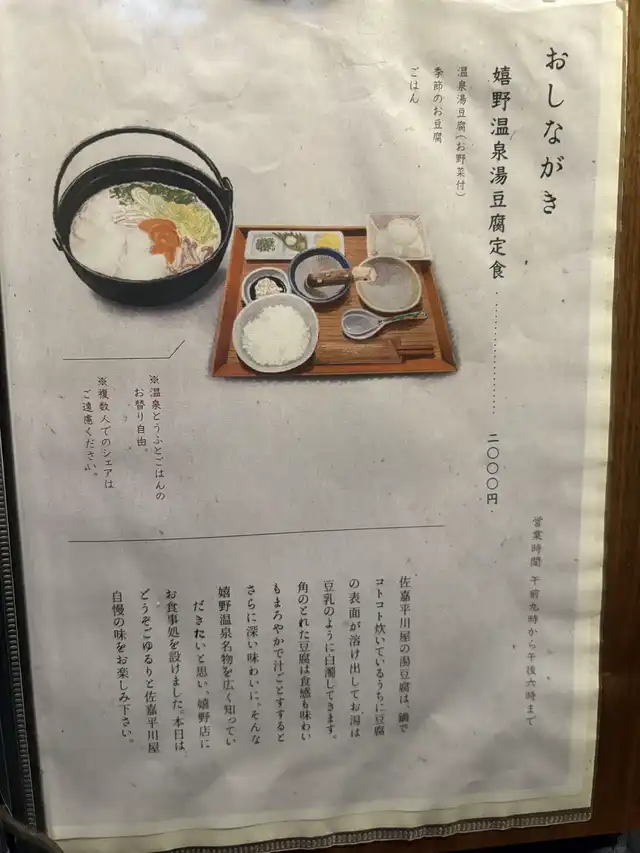 おしながき
嬉野温泉湯豆腐定食……………………二〇〇〇円
温泉湯豆腐(お野菜付)
季節のお豆腐
ごはん
※温泉とうふとごはんの
お替り自由。
※複数人でのシェアは
ご遠慮ください。
営業時間 午前九時から午後六時まで
佐嘉平川屋の湯豆腐は、鍋で
コトコト炊いているうちに豆腐
の表面が溶け出してお湯は
豆乳のように白濁してきます。
角のとれた豆腐は食感も味わい
もまろやかで汁ごとすすると
さらに深い味わいに。そんな
嬉野温泉名物を広く知ってい
だきたいと思い、嬉野店に
お食事処を設けました。本日は、
どうぞごゆるりと佐嘉平川屋
自慢の味をお楽しみ下さい。